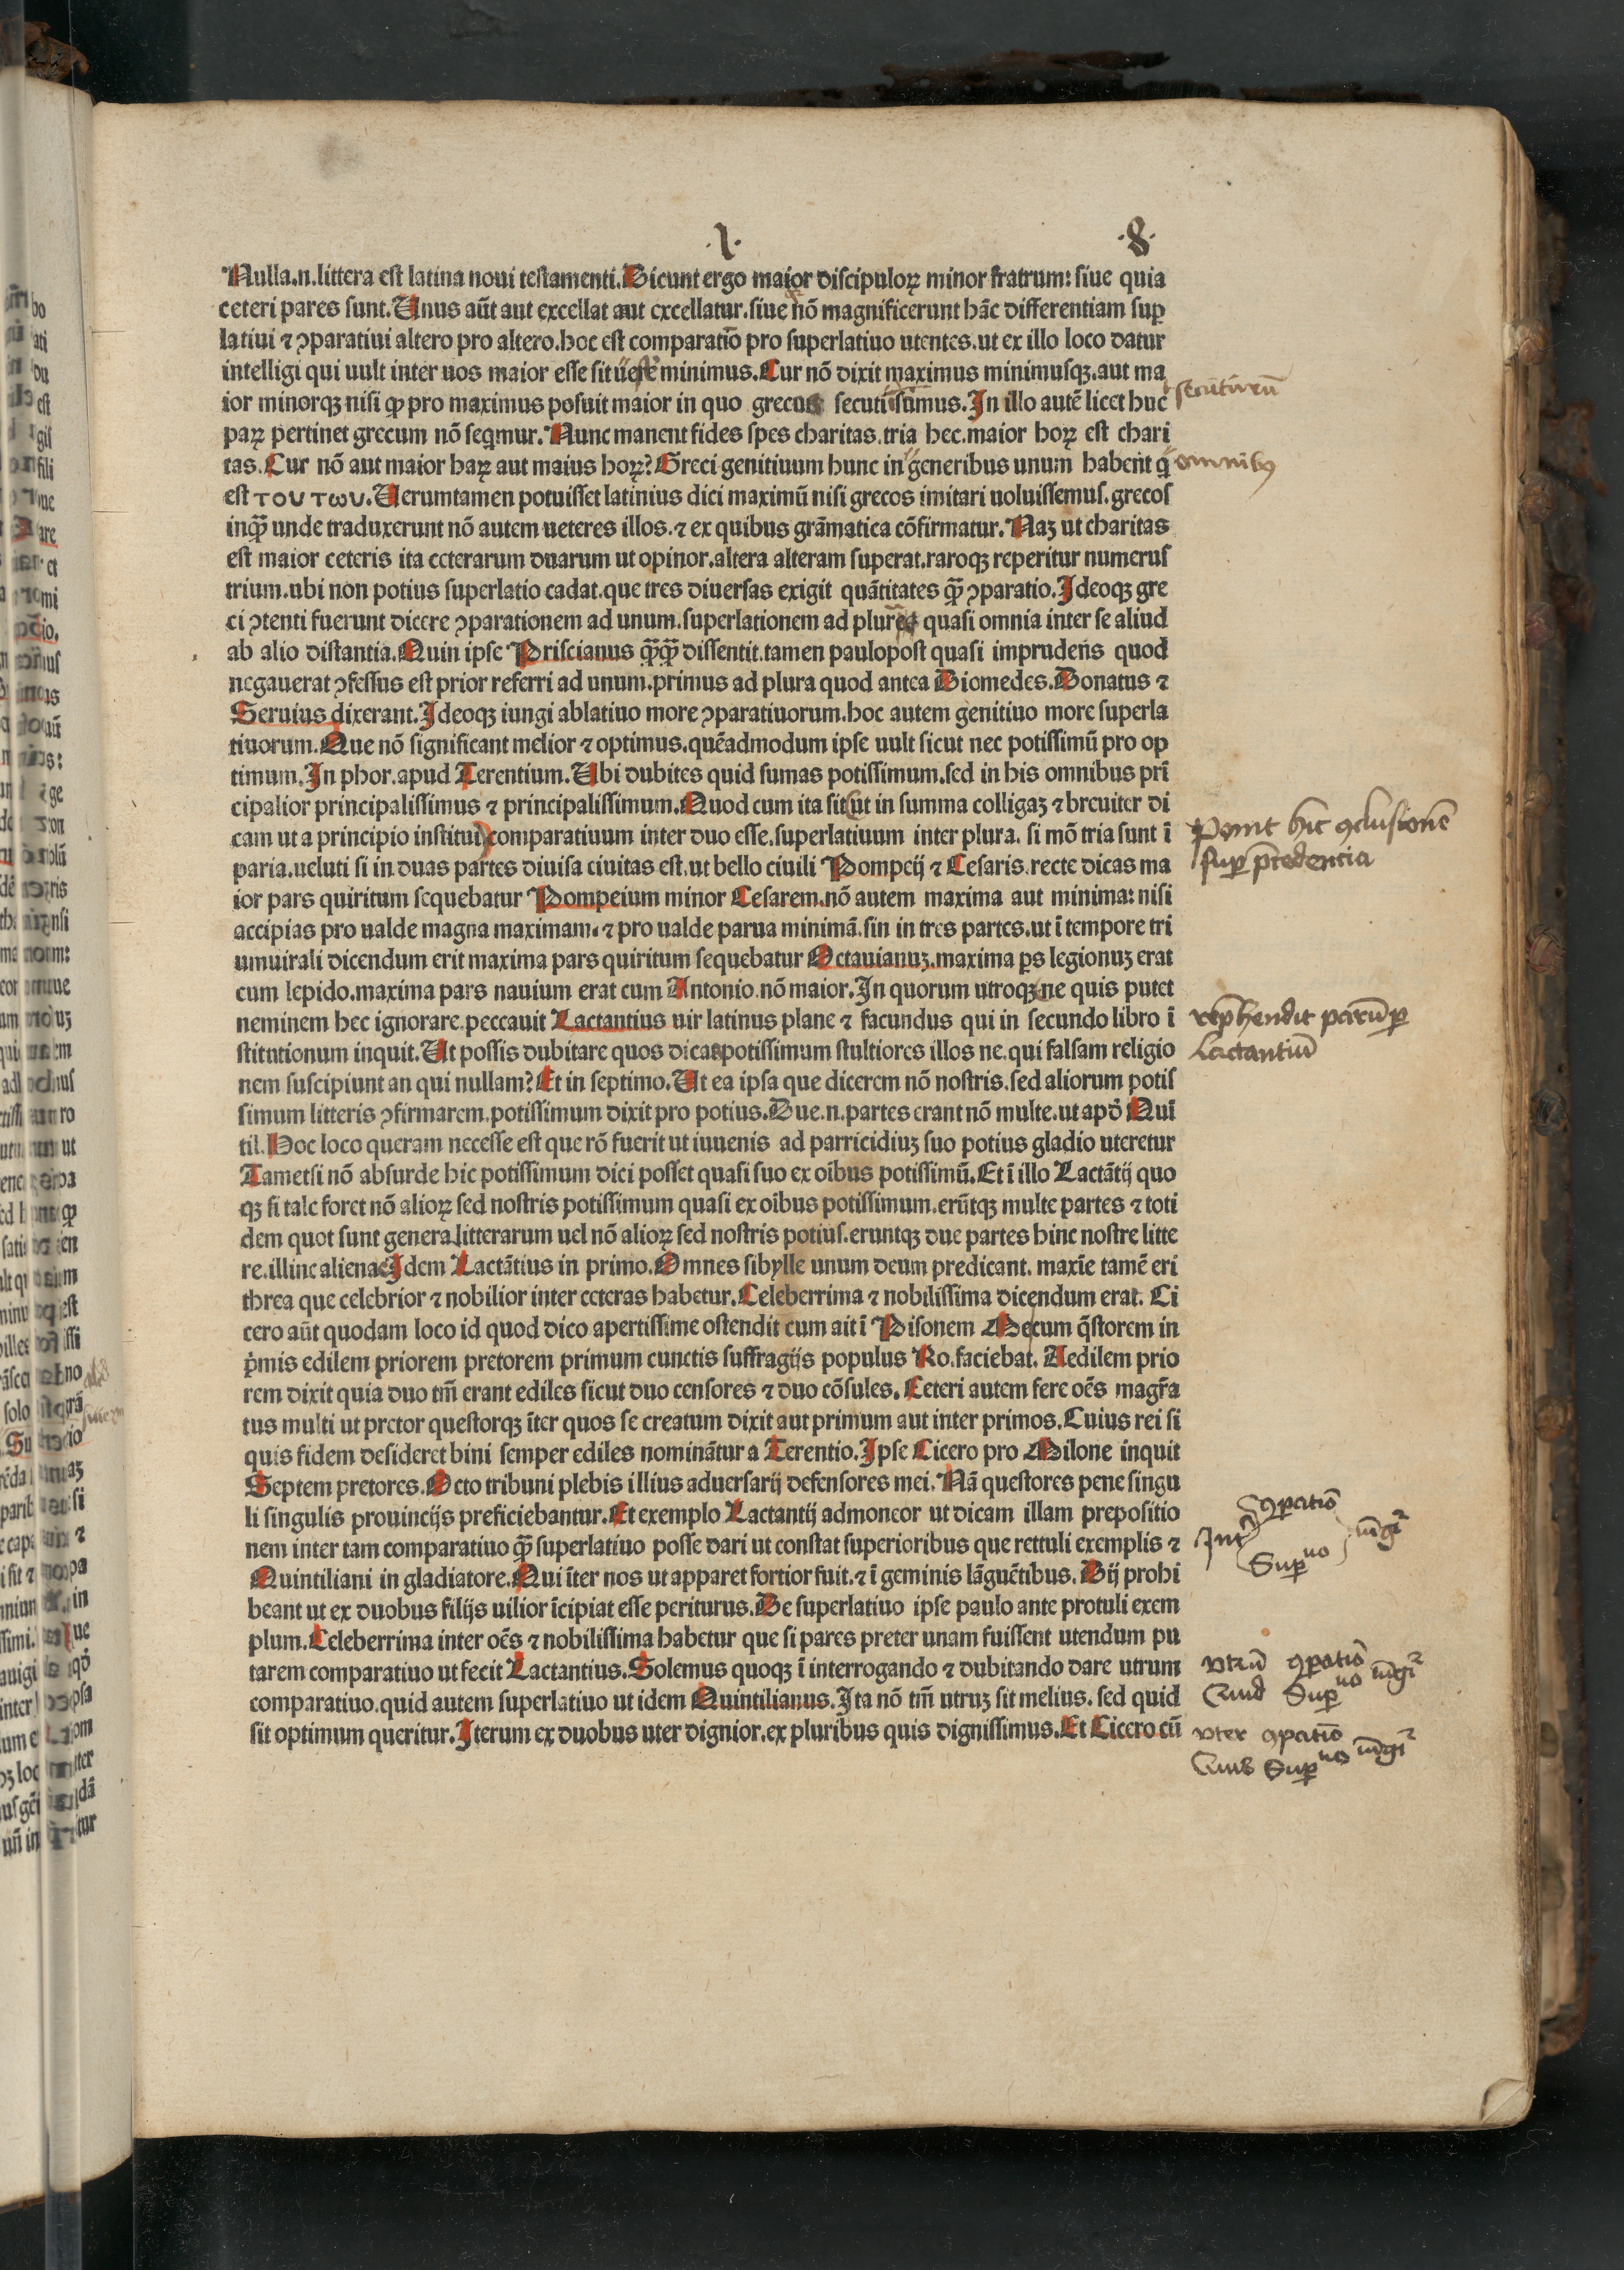 .1. .8.
Nulla.n.littera est latina noui testamenti.Dicunt ergo maior discipuloꝝ minor fratrum: siue quia
ceteri pares sunt.Unus aūt aut excellat aut excellatur.siue nō magnificerunt hāc differentiam suꝑ
latiui ⁊ ꝯparatiui altero pro altero.hoc est comparatiō pro superlatiuo utentes.ut ex illo loco datur
intelligi qui uult inter uos maior esse sit minimus.Cur nō dixit maximus minimusqꝫ.aut ma
ior minorqꝫ nisi ꝙ pro maximus posuit maior in quo grecos secuti sumus.In illo autē licet huc
secuti
paꝝ pertinet grecum nō seqmur.Nunc manent fides spes charitas.tria hec.maior hoꝝ est chari
tas.Cur nō aut maior haꝝ aut maius hoꝝ?Greci genitiuum hunc in generibus unum habent q̄
omnibꝫ
est του των.Uerumtamen potuisset latinius dici maximū nisi grecos imitari uoluissemus.grecos
inqꝫ̄ unde traduxerunt nō autem ueteres illos.⁊ ex quibus grāmatica cōfirmatur.Naꝫ ut charitas
est maior ceteris ita ceterarum duarum ut opinor.altera alteram superat.raroqꝫ reperitur numerus
trium.ubi non potius superlatio cadat.que tres diuersas exigit quātitates qꝫ̄ ꝯparatio.Ideoqꝫ gre
ci ꝯtenti fuerunt dicere ꝯparationem ad unum.superlationem ad plures quasi omnia inter se aliud
ab alio distantia.Quin ipse Priscianus qꝫ̄qꝫ̄ dissentit.tamen paulopost quasi imprudens quod
negauerat ꝯfessus est prior referri ad unum.primus ad plura quod antea Diomedes.Donatus ⁊
Seruius dixerant.Ideoqꝫ iungi ablatiuo more ꝯparatiuorum.hoc autem genitiuo more superla
tiuorum.Que nō significant melior ⁊ optimus.quēadmodum ipse uult sicut nec potissimū pro op
timum.In phor.apud Terentium.Ubi dubites quid sumas potissimum.sed in his omnibus prī
cipalior principalissimus ⁊ principalissimum.Quod cum ita sit ut in summa colligaꝫ ⁊ breuiter di
cam ut a principio institui comparatiuum inter duo esse.superlatiuum inter plura. si mō tria sunt ī
Ponit hic ꝯclusionē
paria.ueluti si in duas partes diuisa ciuitas est.ut bello ciuili Pompeij ⁊ Cesaris.recte dicas ma
suꝑ p̄cedentia
ior pars quiritum sequebatur Pompeium minor Cesarem.nō autem maxima aut minima: nisi
accipias pro ualde magna maximam.⁊ pro ualde parua minimā.sin in tres partes.ut ī tempore tri
umuirali dicendum erit maxima pars quiritum sequebatur Octauianuꝫ.maxima ꝑs legionuꝫ erat
cum lepido.maxima pars nauium erat cum Antonio.nō maior.In quorum utroqꝫ ne quis putet
neminem hec ignorare.peccauit Lactantius uir latinus plane ⁊ facundus qui in secundo libro ī
rep̄hendit parūꝑ
stitutionum inquit.Ut possis dubitare quos dicas potissimum stultiores illos ne.qui falsam religio
Lactantiū
nem suscipiunt an qui nullam?Et in septimo.Ut ea ipsa que dicerem nō nostris.sed aliorum potis
simum litteris ꝯfirmarem.potissimum dixit pro potius.Due.n.partes erant nō multe.ut apð Qui
til.Hoc loco queram necesse est que rō fuerit ut iuuenis ad parricidiuꝫ suo potius gladio uteretur
Tametsi nō absurde hic potissimum dici posset quasi suo ex oībus potissimū.Et ī illo Lactātij quo
qꝫ si tale foret nō alioꝝ sed nostris potissimum quasi ex oībus potissimum.erūtqꝫ multe partes ⁊ toti
dem quot sunt genera litterarum uel nō alioꝝ sed nostris potius.eruntqꝫ due partes hinc nostre litte
re.illinc alienae Idem Lactātius in primo.Omnes sibylle unum deum predicant. maxīe tamē eri
threa que celebrior ⁊ nobilior inter ceteras habetur.Celeberrima ⁊ nobilissima dicendum erat. Ci
cero aūt quodam loco id quod dico apertissime ostendit cum ait ī Pisonem Mecum q̄storem in
p̄mis edilem priorem pretorem primum cunctis suffragijs populus Ro.faciebat. Aedilem prio
rem dixit quia duo tm̄ erant ediles sicut duo censores ⁊ duo cōsules. Ceteri autem fere oēs magr̄a
tus multi ut pretor questorqꝫ īter quos se creatum dixit aut primum aut inter primos.Cuius rei si
quis fidem desideret bini semper ediles nominātur a Terentio.Ipse Cicero pro Milone inquit
Septem pretores.Octo tribuni plebis illius aduersarij defensores mei.Nā questores pene singu
li singulis prouincijs preficiebantur.Et exemplo Lactantij admoneor ut dicam illam prepositio
nem inter tam comparatiuo qꝫ̄ superlatiuo posse dari ut constat superioribus que rettuli exemplis ⁊
Int̄ ꝯpatiō Suꝑuo iūgi
Quintiliani in gladiatore.Qui īter nos ut apparet fortior fuit.⁊ ī geminis lāguētibus.Dij prohi
beant ut ex duobus filijs uilior īcipiat esse periturus.De superlatiuo ipse paulo ante protuli exem
plum.Celeberrima inter oēs ⁊ nobilissima habetur que si pares preter unam fuissent utendum pu
tarem comparatiuo ut fecit Lactantius.Solemus quoqꝫ ī interrogando ⁊ dubitando dare utrum
vtrū ꝯpatiō
comparatiuo.quid autem superlatiuo ut idem Quintilianus.Ita nō tm̄ utruꝫ sit melius. sed quid
Quid Suꝑuo iūgi
sit optimum queritur.Iterum ex duobus uter dignior.ex pluribus quis dignissimus.Et Cicero cū
vter ꝯpatiō
Quis Suꝑuo iūgi